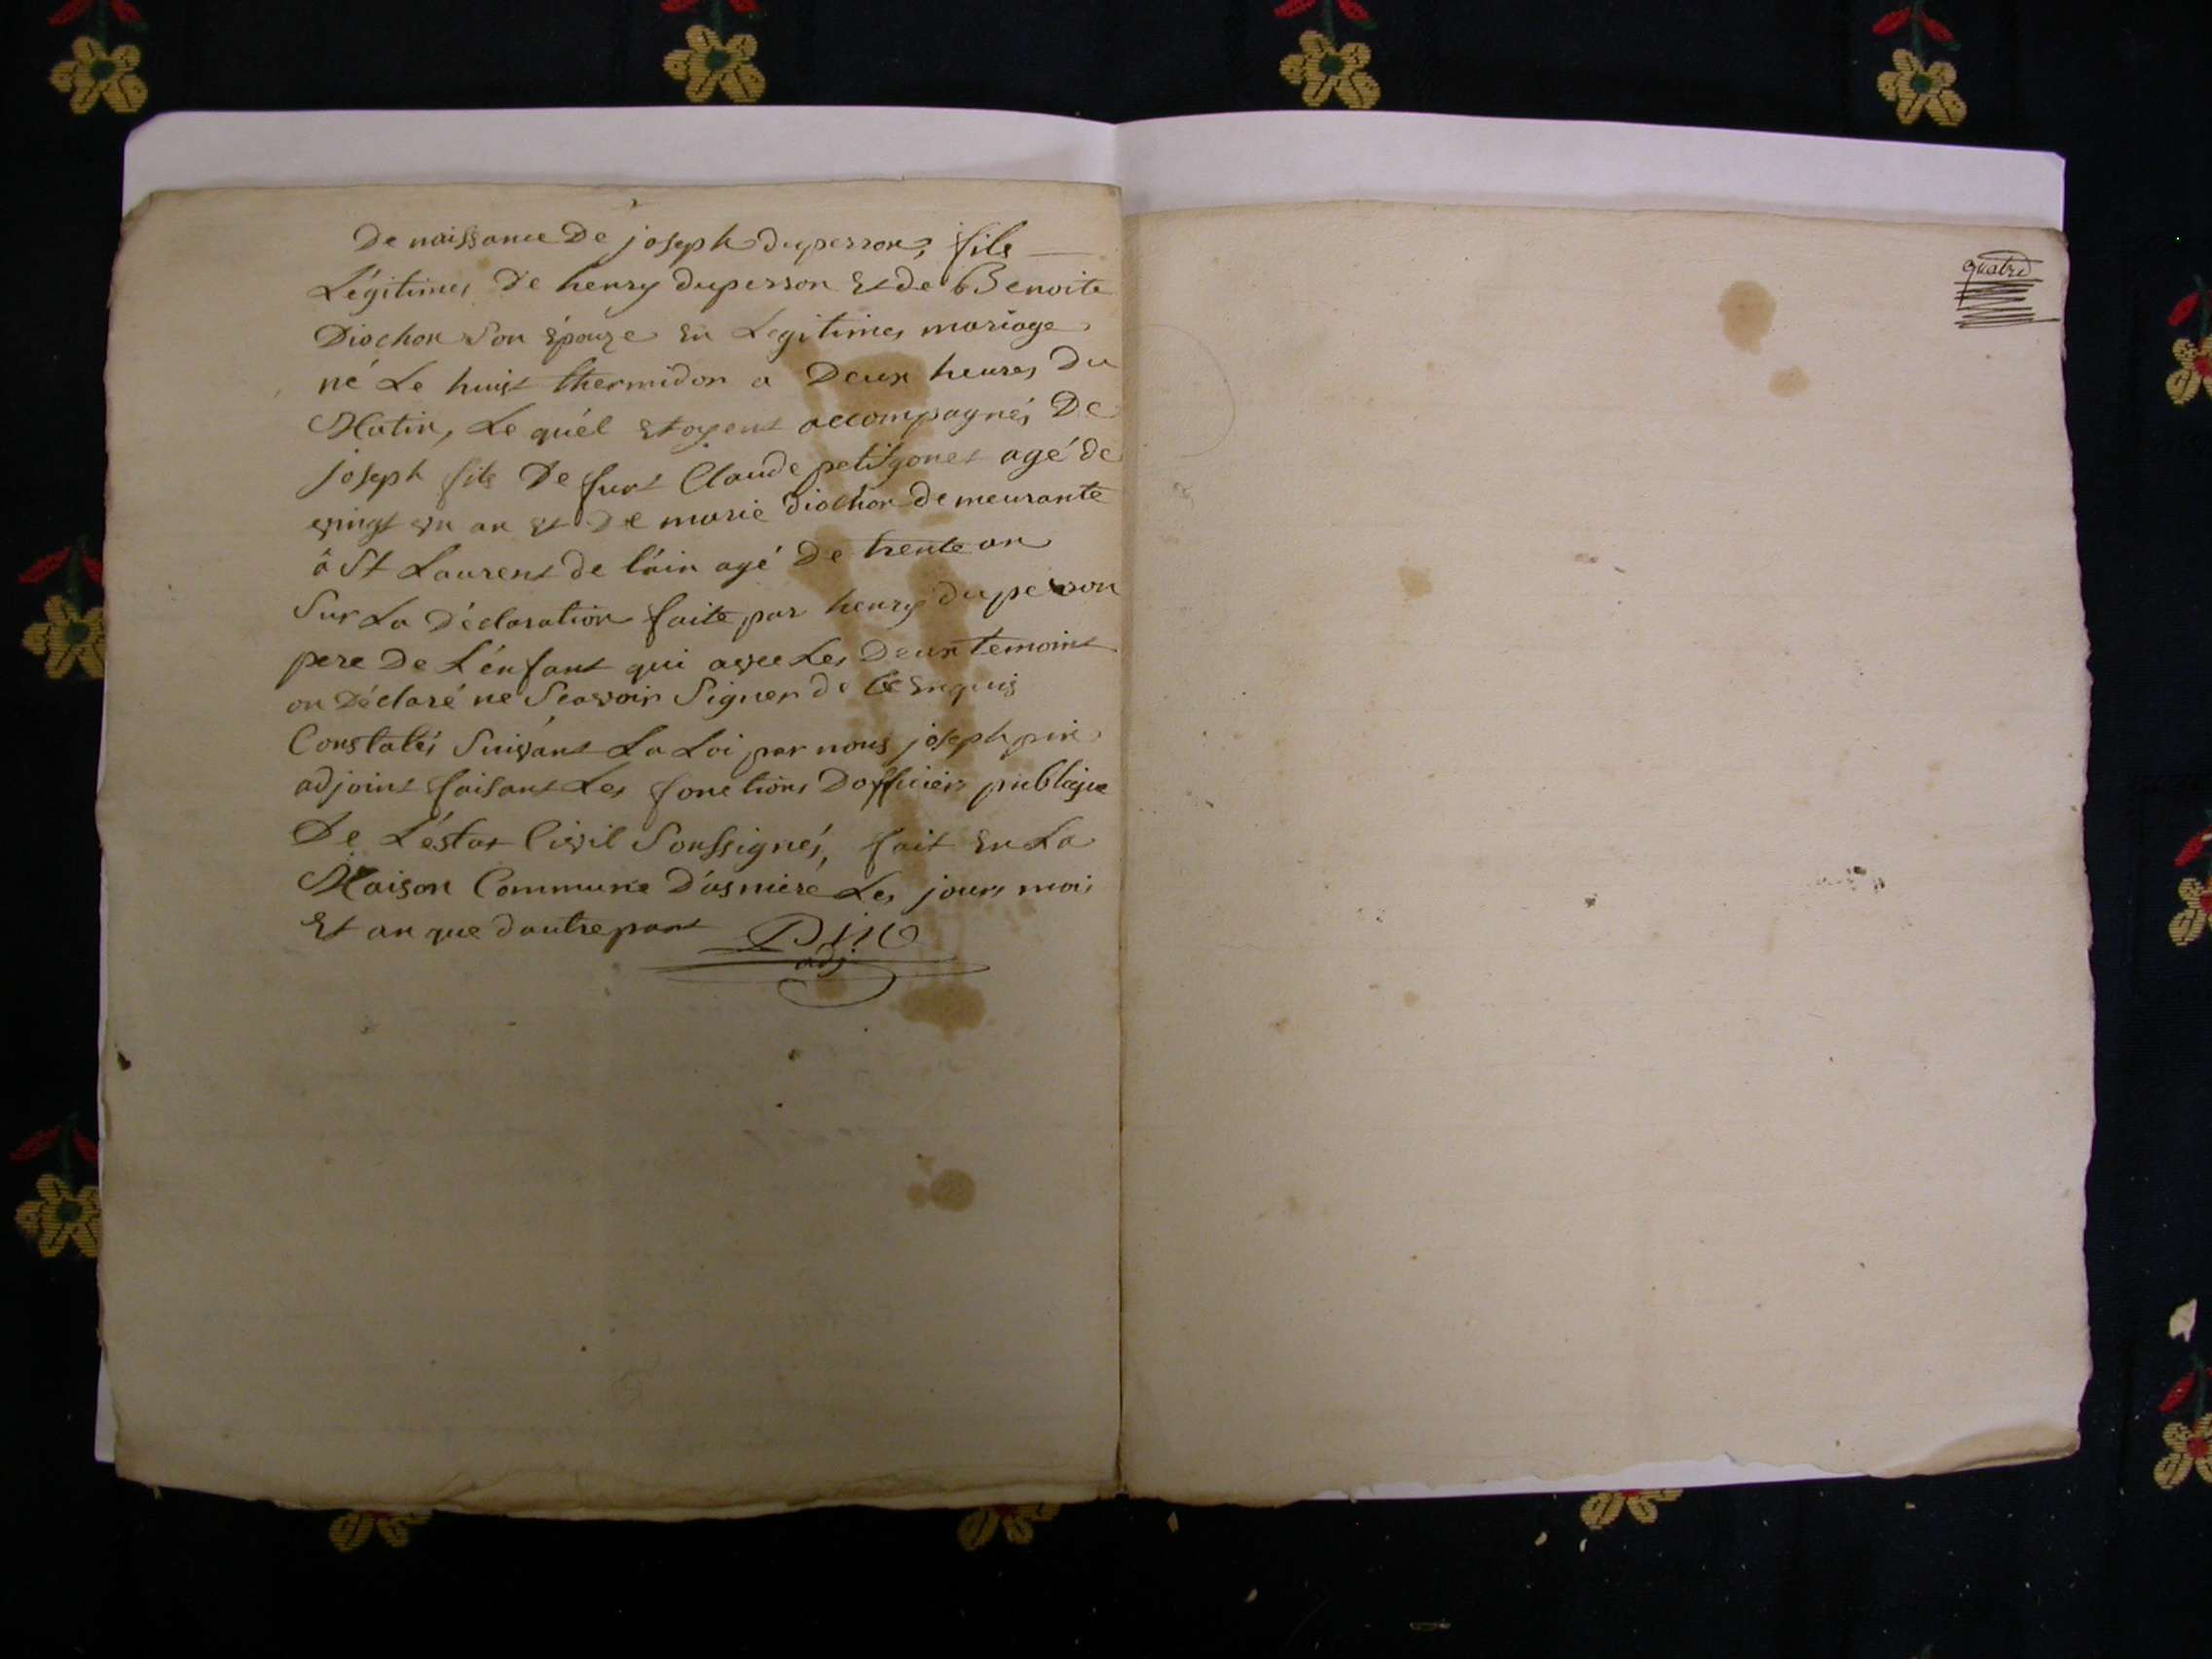 De naissance De joseph duperron, fils
Légitimes De henry duperron Et de Benoite
Diochon Son Épouze En Legitimes mariage
né Le huist thermidor a Deux heures Du
Matin, Le quél Etoyent accompagnés De
joseph fils De furt Claude petitjonet agé de
vingt un an Et De marie Diochon demeurante
à St Laurent de l'áin agé De trente an
Sur La Déclaration faite par henry duperron
pere De L'énfant qui avec Les Deux temoins
on Déclaré ne Scavoir Signer de Ce Enquis
Constatés Suivant La Loi par nous joseph pine
adjoint faisant Les fonctions Dofficier publique
De L'éstat Civil Soussignés, fait En La
Maison Commune D'asniere Les jours mois
Et an que dautrepart Pine
adj.
quatre